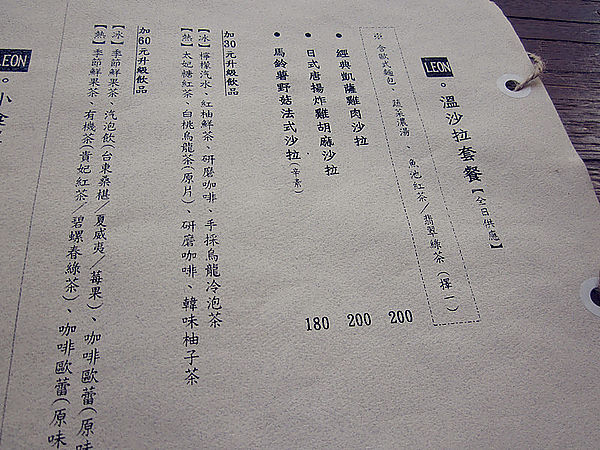 LEON 。溫沙拉套餐【全日供應】
※ 含歐式麵包、蔬菜濃湯、魚池紅茶／翡翠綠茶（擇一）
• 經典凱薩雞肉沙拉 200
• 日式唐揚炸雞胡麻沙拉 200
• 馬鈴薯野菇法式沙拉(辛素) 180
加30元升級飲品
【冰】檸檬汽水、紅柚鮮茶、研磨咖啡、手採烏龍冷泡茶
【熱】太妃糖紅茶、白桃烏龍茶(原片)、研磨咖啡、韓味柚子茶
加60元升級飲品
【冰】季節鮮果茶、汽泡飲(台東桑椹／夏威夷／莓果)、咖啡歐蕾(原味
【熱】季節鮮果茶、有機茶(貴妃紅茶／碧螺春綠茶)、咖啡歐蕾(原味
LEON 。